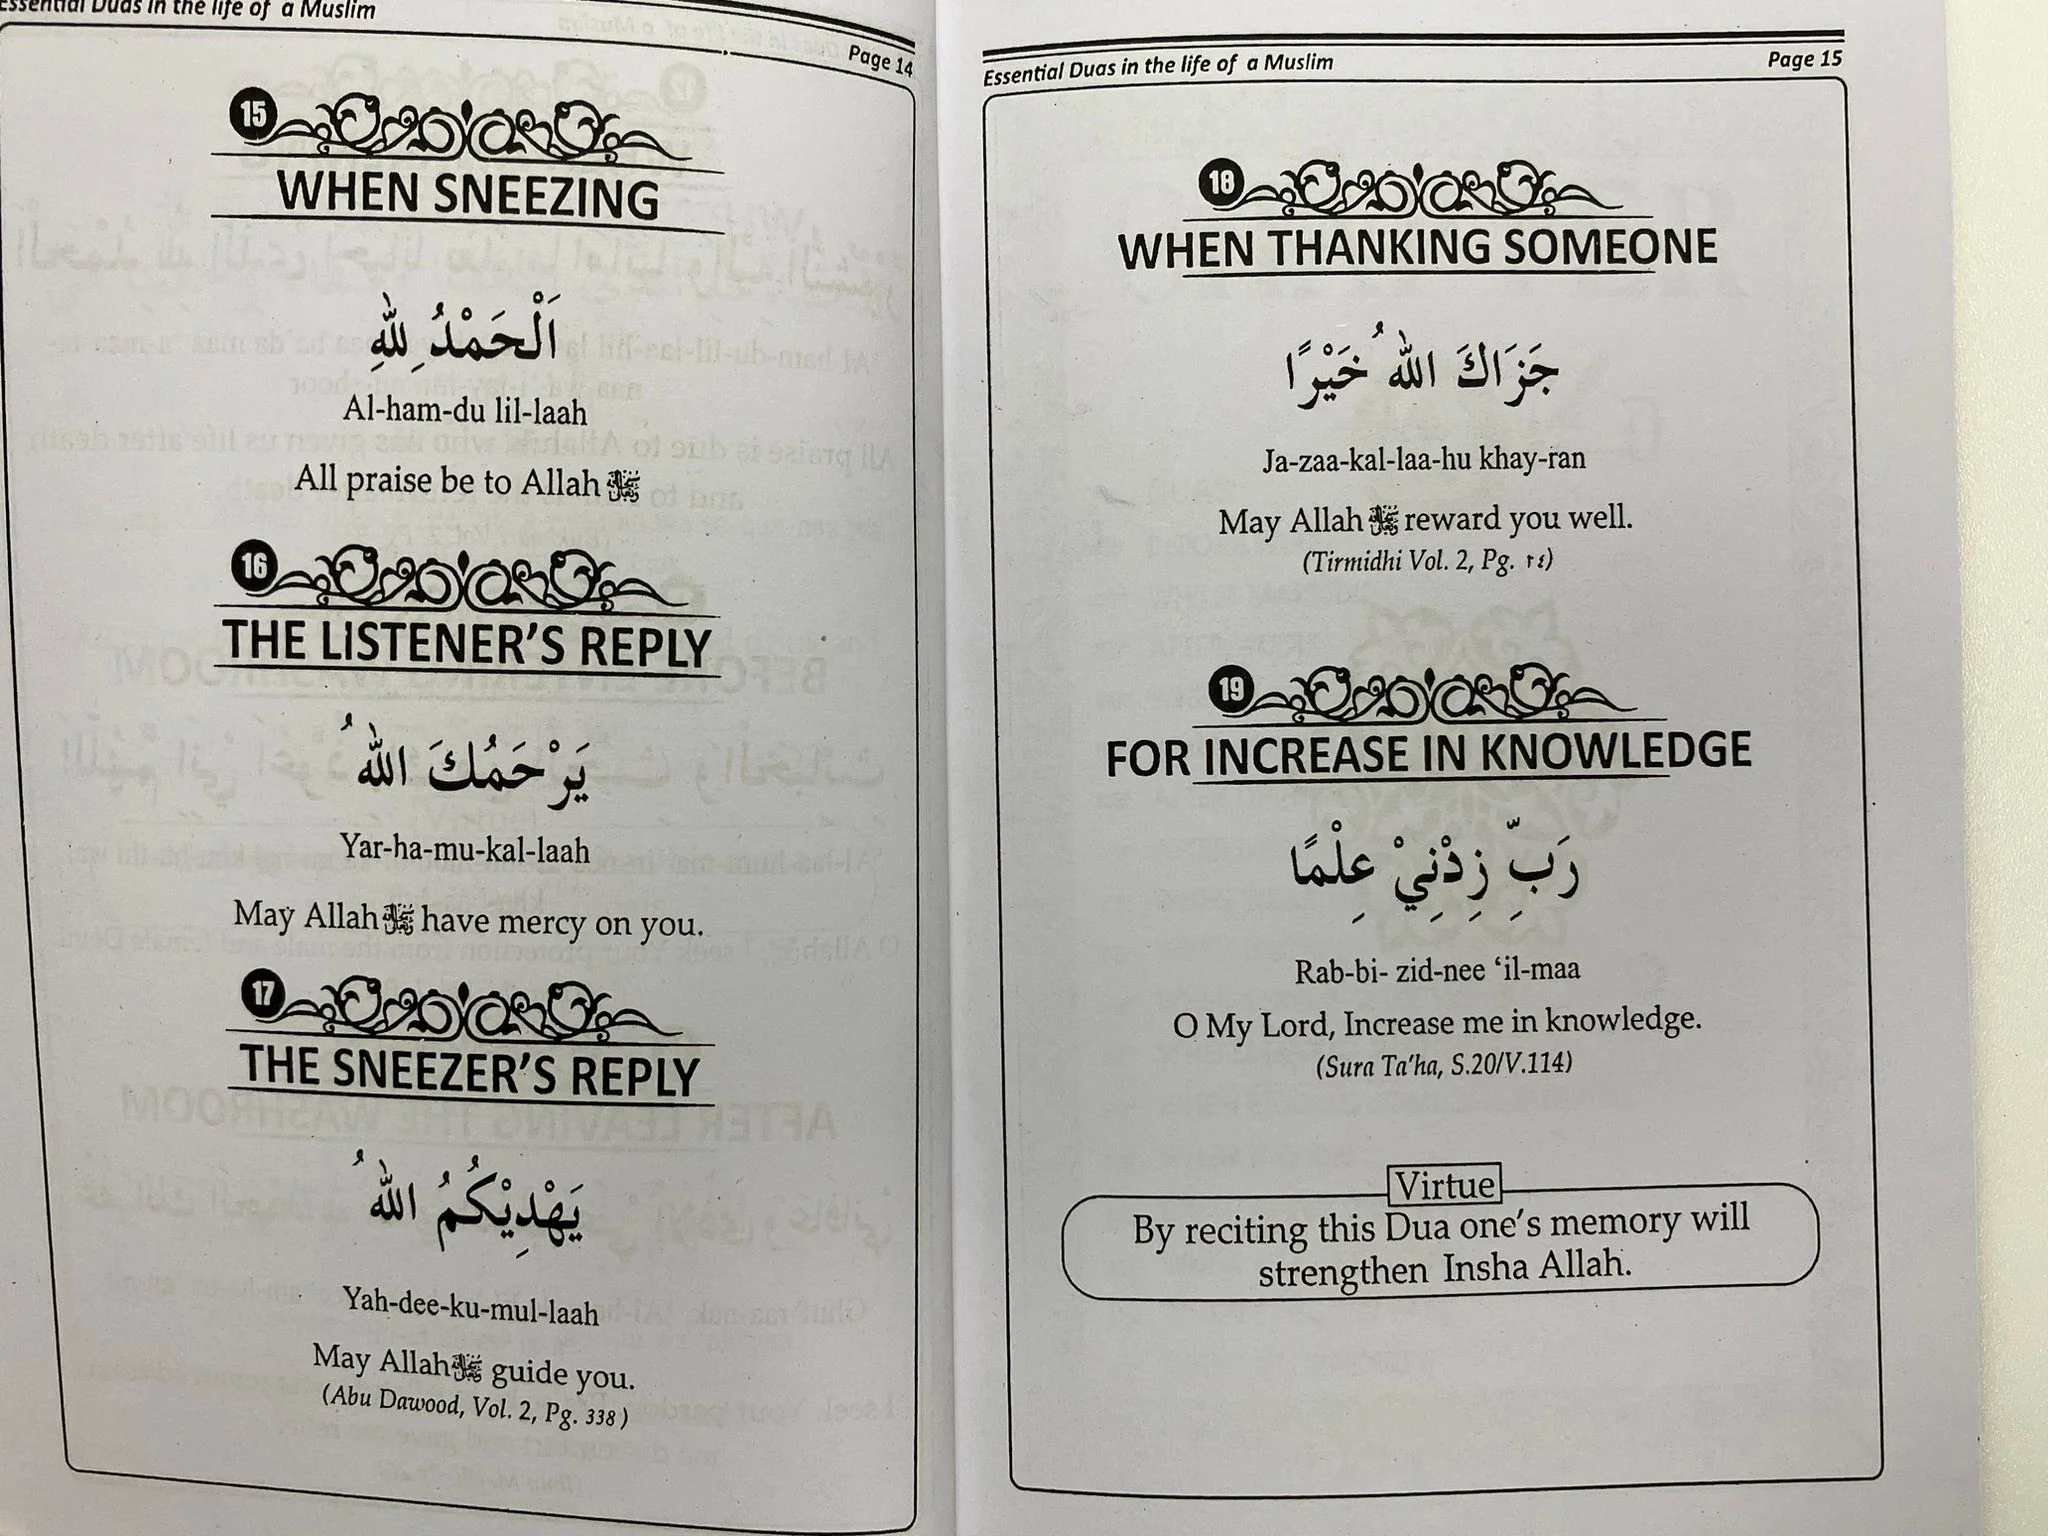 Essential Duas in the life of a Muslim
Page 14
15
WHEN SNEEZING
اَلْحَمْدُ لِلّٰهِ
Al-ham-du lil-laah
All praise be to Allah ﷻ
16
THE LISTENER'S REPLY
يَرْحَمُكَ اللّٰهُ
Yar-ha-mu-kal-laah
May Allah ﷻ have mercy on you.
17
THE SNEEZER'S REPLY
يَهْدِيْكُمُ اللّٰهُ
Yah-dee-ku-mul-laah
May Allah ﷻ guide you.
(Abu Dawood, Vol. 2, Pg. 338)
Essential Duas in the life of a Muslim
Page 15
18
WHEN THANKING SOMEONE
جَزَاكَ اللّٰهُ خَيْرًا
Ja-zaa-kal-laa-hu khay-ran
May Allah ﷻ reward you well.
(Tirmidhi Vol. 2, Pg. ٢٤)
19
FOR INCREASE IN KNOWLEDGE
رَبِّ زِدْنِيْ عِلْمًا
Rab-bi- zid-nee ‘il-maa
O My Lord, Increase me in knowledge.
(Sura Ta’ha, S.20/V.114)
Virtue
By reciting this Dua one’s memory will
strengthen Insha Allah.